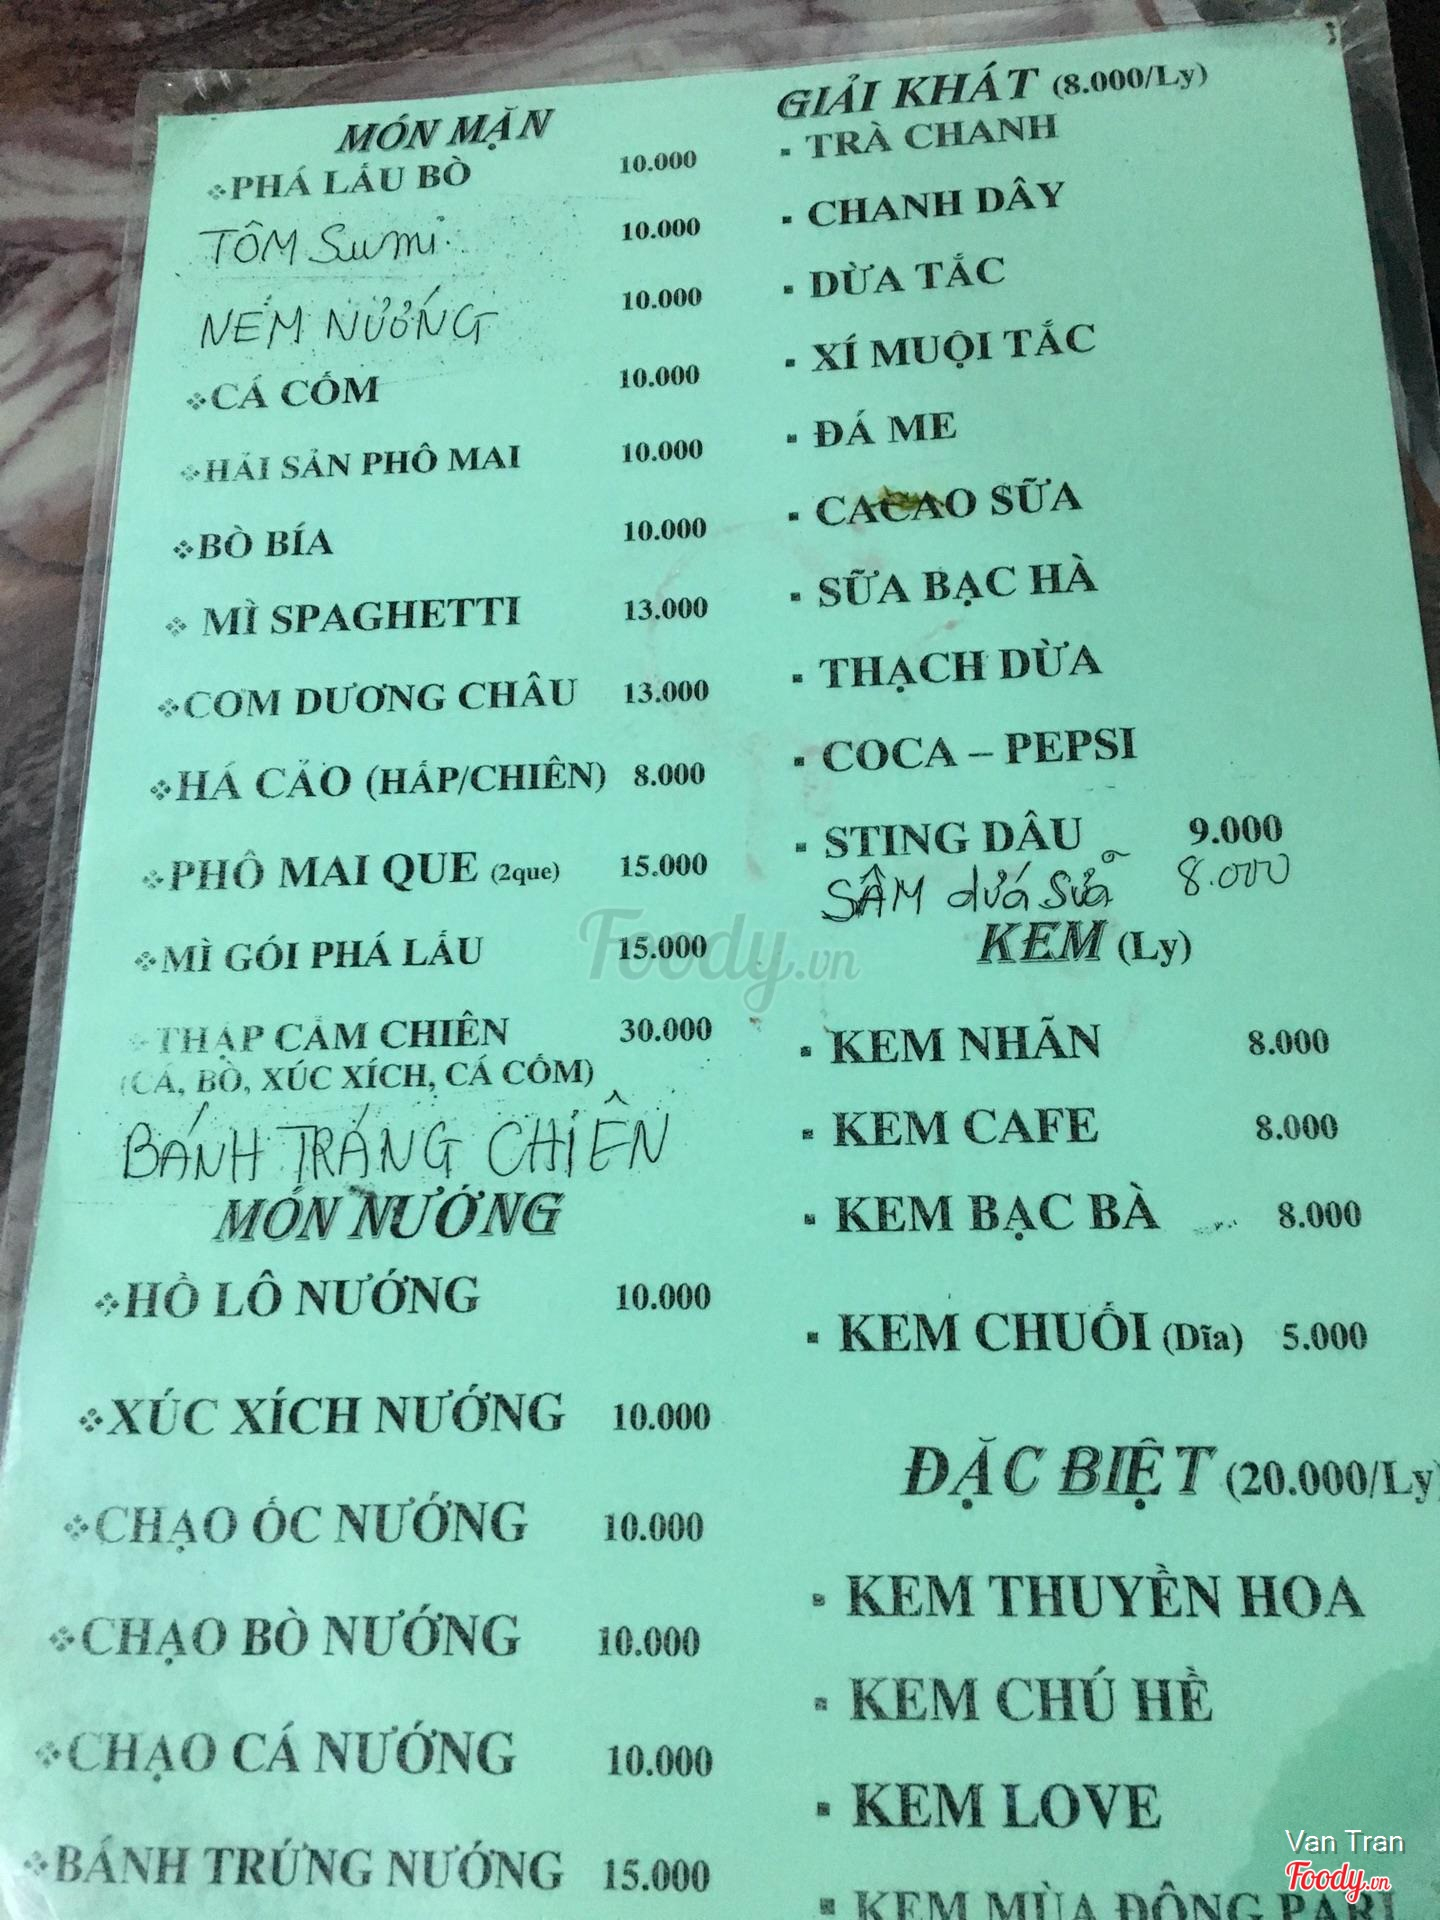 MÓN MẶN
PHÁ LẤU BÒ 10.000
TÔM Sumi 10.000
NEM NƯỚNG 10.000
CÁ CỐM 10.000
HẢI SẢN PHÔ MAI 10.000
BÒ BÍA 10.000
MÌ SPAGHETTI 13.000
CƠM DƯƠNG CHÂU 13.000
HÁ CẢO (HẤP/CHIÊN) 8.000
PHÔ MAI QUE (2que) 15.000
MÌ GÓI PHÁ LẤU 15.000
THẬP CẨM CHIÊN 30.000
(CÁ, BÒ, XÚC XÍCH, CÁ CỐM)
BÁNH TRÁNG CHIÊN
MÓN NƯỚNG
HỒ LÔ NƯỚNG 10.000
XÚC XÍCH NƯỚNG 10.000
CHẠO ỐC NƯỚNG 10.000
CHẠO BÒ NƯỚNG 10.000
CHẠO CÁ NƯỚNG 10.000
BÁNH TRỨNG NƯỚNG 15.000
GIẢI KHÁT (8.000/Ly)
TRÀ CHANH
CHANH DÂY
DỪA TẮC
XÍ MUỘI TẮC
ĐÁ ME
CACAO SỮA
SỮA BẠC HÀ
THẠCH DỪA
COCA – PEPSI
STING DÂU 9.000
SÂM dứa sữa 8.000
KEM (Ly)
KEM NHÃN 8.000
KEM CAFE 8.000
KEM BẠC BÀ 8.000
KEM CHUỐI (Dĩa) 5.000
ĐẶC BIỆT (20.000/Ly)
KEM THUYỀN HOA
KEM CHÚ HỀ
KEM LOVE
KEM MÙA ĐÔNG PARI
Foody.vn
Van Tran
Foody.vn